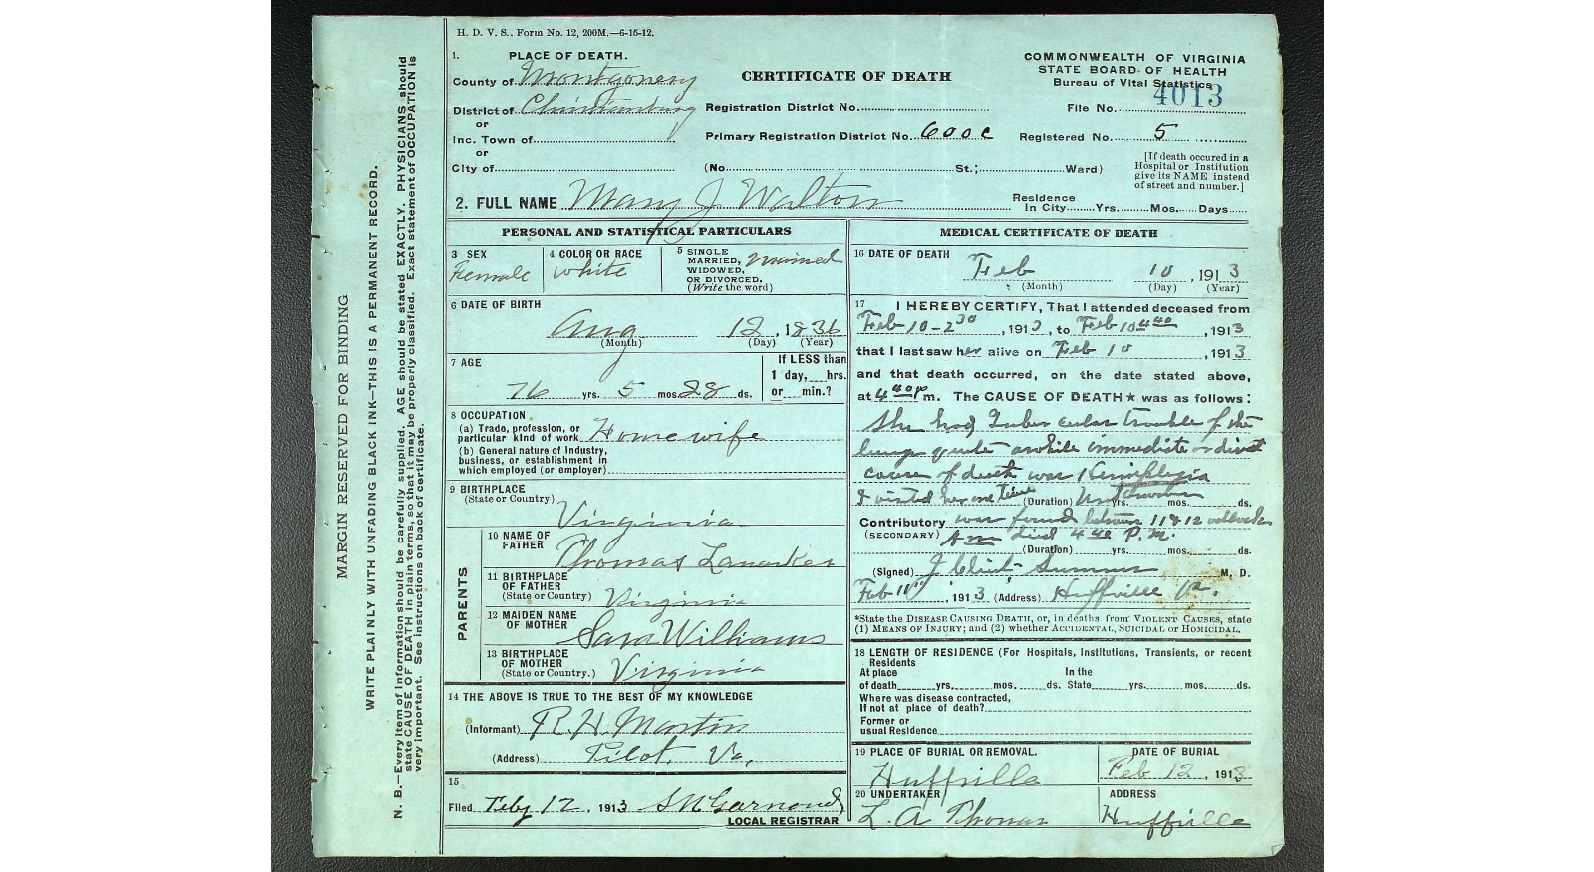 H. D. V. S.. Form No. 12, 200M.—6-15-12.
1. PLACE OF DEATH.
County of Montgomery
District of Christiansburg
or
Inc. Town of
or
City of
CERTIFICATE OF DEATH
Registration District No.
Primary Registration District No. 600c
(No. St.; Ward)
COMMONWEALTH OF VIRGINIA
STATE BOARD OF HEALTH
Bureau of Vital Statistics
File No. 4013
Registered No. 5
[If death occured in a
Hospital or Institution
give its NAME instead
of street and number.]
2. FULL NAME Mary J Walton
Residence
In City Yrs. Mos. Days
PERSONAL AND STATISTICAL PARTICULARS
3 SEX
Female
4 COLOR OR RACE
White
5 SINGLE
MARRIED,
WIDOWED,
OR DIVORCED.
(Write the word)
Married
6 DATE OF BIRTH
Aug 12, 1836
(Month) (Day) (Year)
7 AGE
76 yrs. 5 mos 28 ds.
If LESS than
1 day, hrs.
or min.?
8 OCCUPATION
(a) Trade, profession, or
particular kind of work Housewife
(b) General nature of Industry,
business, or establishment in
which employed (or employer)
9 BIRTHPLACE
(State or Country)
Virginia
PARENTS
10 NAME OF
FATHER
Thomas
11 BIRTHPLACE
OF FATHER
(State or Country)
Virginia
12 MAIDEN NAME
OF MOTHER
Sara Williams
13 BIRTHPLACE
OF MOTHER
(State or Country.)
Virginia
14 THE ABOVE IS TRUE TO THE BEST OF MY KNOWLEDGE
(Informant) R. H. Martin
(Address) Pilot, Va,
15
Filed Feby 12, 1913
LOCAL REGISTRAR
MEDICAL CERTIFICATE OF DEATH
16 DATE OF DEATH
Feb 10, 1913
(Month) (Day) (Year)
17 I HEREBY CERTIFY, That I attended deceased from
Feb 10-2 30, 1913, to Feb 10 4 40, 1913
that I last saw her alive on Feb 10, 1913
and that death occurred, on the date stated above,
at 4 40 p m. The CAUSE OF DEATH★ was as follows:
She had Tubercular trouble of the
lungs quite awhile immediate or direct
cause of death was Hemiplegia
I visited her one time (Duration) Unknown yrs. mos. ds.
Contributory was found between 11 & 12 oclock
(SECONDARY) Am died 4 40 P.M.
(Duration) yrs. mos. ds.
(Signed) J Clint Summer M. D.
Feb 11", 1913 (Address) Huffville Va.
*State the DISEASE CAUSING DEATH, or, in deaths from VIOLENT CAUSES, state
(1) MEANS OF INJURY; and (2) whether ACCIDENTAL, SUICIDAL or HOMICIDAL.
18 LENGTH OF RESIDENCE (For Hospitals, Institutions, Transients, or recent
Residents
At place In the
of death yrs. mos. ds. State yrs. mos. ds.
Where was disease contracted,
If not at place of death?
Former or
usual Residence
19 PLACE OF BURIAL OR REMOVAL.
Huffville
DATE OF BURIAL
Feb 12, 1913
20 UNDERTAKER
L. A Thomas
ADDRESS
Huffville
MARGIN RESERVED FOR BINDING
WRITE PLAINLY WITH UNFADING BLACK INK—THIS IS A PERMANENT RECORD.
N. B.—Every item of Information should be carefully supplied. AGE should be stated EXACTLY. PHYSICIANS should
state CAUSE OF DEATH in plain terms, so that it may be properly classified. Exact statement of OCCUPATION is
very important. See instructions on back of certificate.